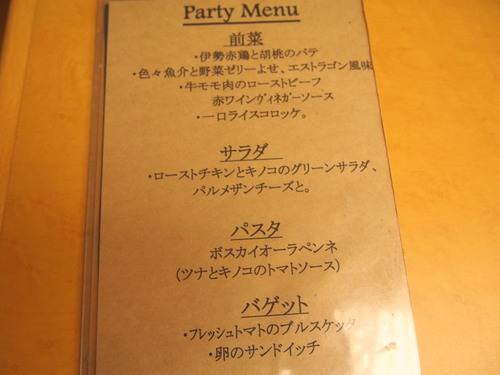 Party Menu
前菜
・伊勢赤鶏と胡桃のパテ
・色々魚介と野菜ゼリーよせ、エストラゴン風味
・牛モモ肉のローストビーフ
赤ワインヴィネガーソース
・一口ライスコロッケ。
サラダ
・ローストチキンとキノコのグリーンサラダ、
パルメザンチーズと。
パスタ
ボスカイオーラペンネ
(ツナとキノコのトマトソース)
バゲット
・フレッシュトマトのブルスケッタ
・卵のサンドイッチ